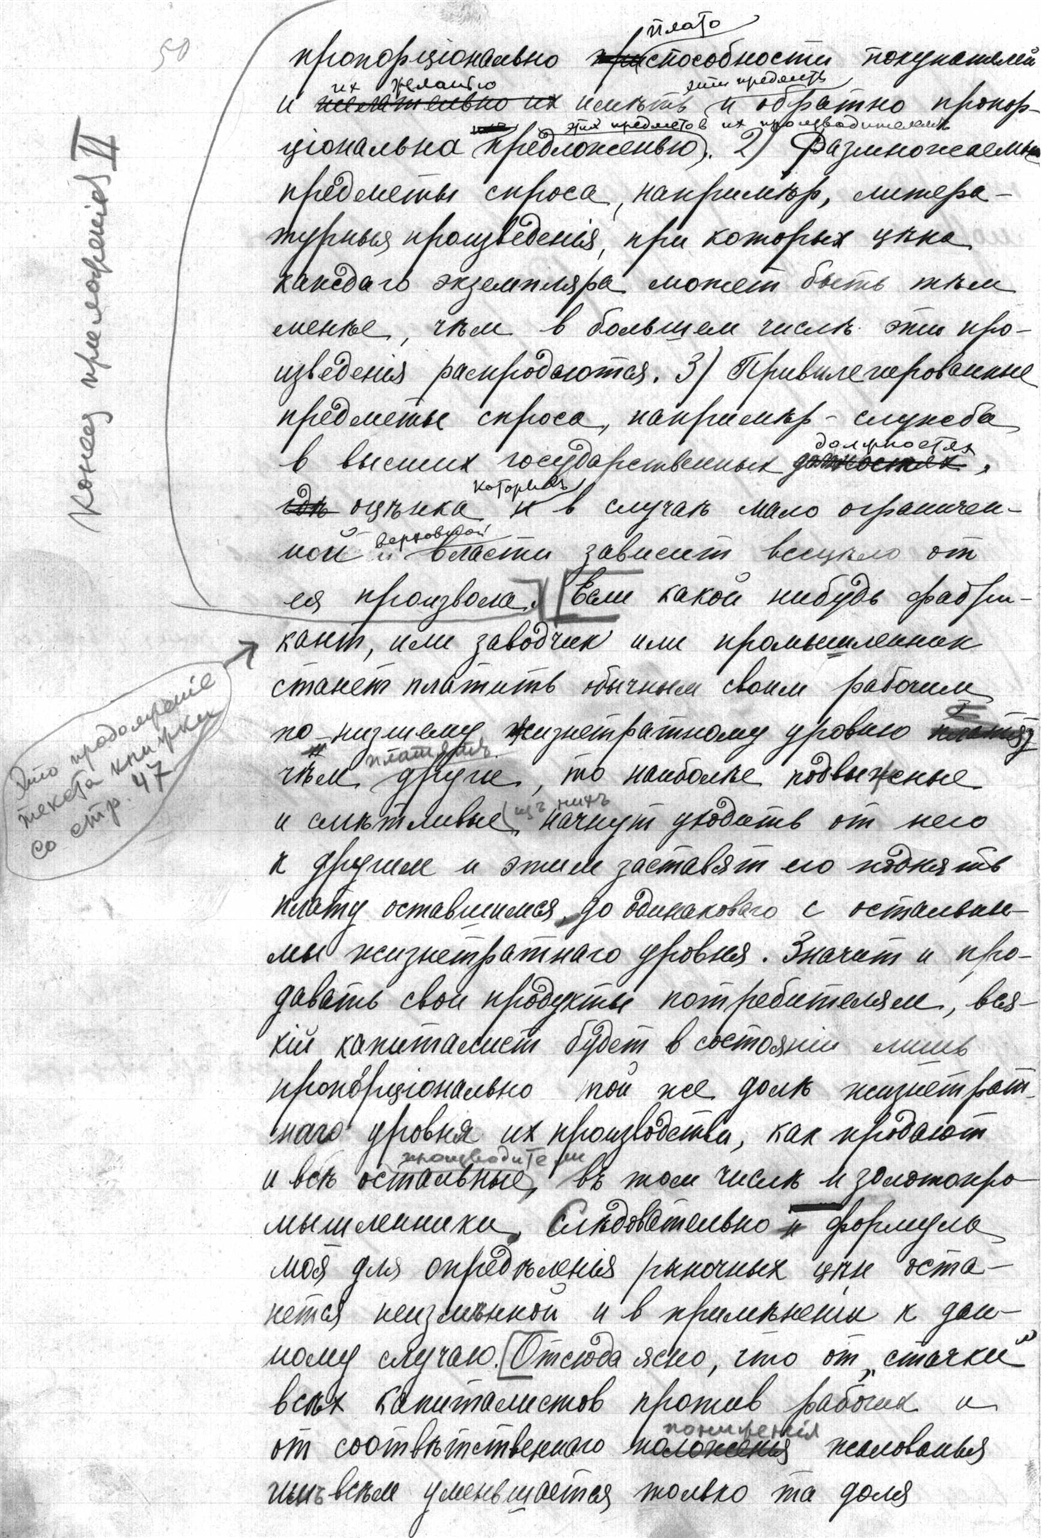 50
плато
пропорціонально способности покупателей
их желанію эти предметы
и желательно их имѣть и обратно пропор-
этих предметов их производителями
ціональна предложенью). 2) Размножаемые
предметы спроса, напримѣр, литера-
турныя произведенія, при которых цѣна
каждаго экземпляра может быть тѣм
менѣе, чѣм в большем числѣ эти про-
изведенія распродаются. 3) Привилегированные
предметы спроса, напримѣр - служба
должностях
в высших государственных должностях,
которых
гдѣ оцѣнка и в случаѣ мало ограничен-
верховной
ной и власти зависит всецѣло от
ея произвола. [Если какой нибудь фабри-
кант, или заводчик или промышленник
станет платить обычным своим рабочим
по низшему жизнетратному уровню
платятъ
чѣм другіе, то наиболѣе подвижные
изъ нихъ
и смѣтливые начнут уходить от него
к другим и этим заставят его поднять
плату оставшимся до одинаковаго с остальны-
ми жизнетратнаго уровня. Значит и про-
давать свои продукты потребителям, вся-
кій капиталист будет в состояніи лишь
пропорціонально той же долѣ жизнетрат-
наго уровня их производства, как продают
производители
и всѣ остальные, въ том числѣ и золотопро-
мышленники. Слѣдовательно и формула
моя для опредѣленья рыночных цѣн оста-
нется неизмѣнной и в примѣненіи к дан-
ному случаю. [Отсюда ясно, что от „стачки"
всѣх капиталистов против рабочих и
пониженія
от соотвѣтственнаго положенья жалованья
имъ всѣм уменьшается только та доля
Конец приложенія II
Это продолженіе
текста книжки
со стр. 47